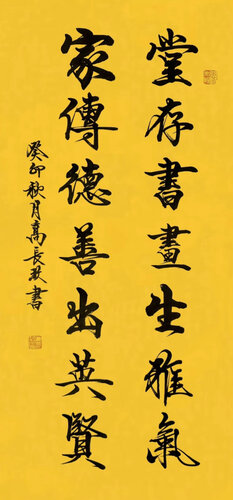 堂存書畫生雅氣
家傳德善出英賢
癸卯秋月高長玖書